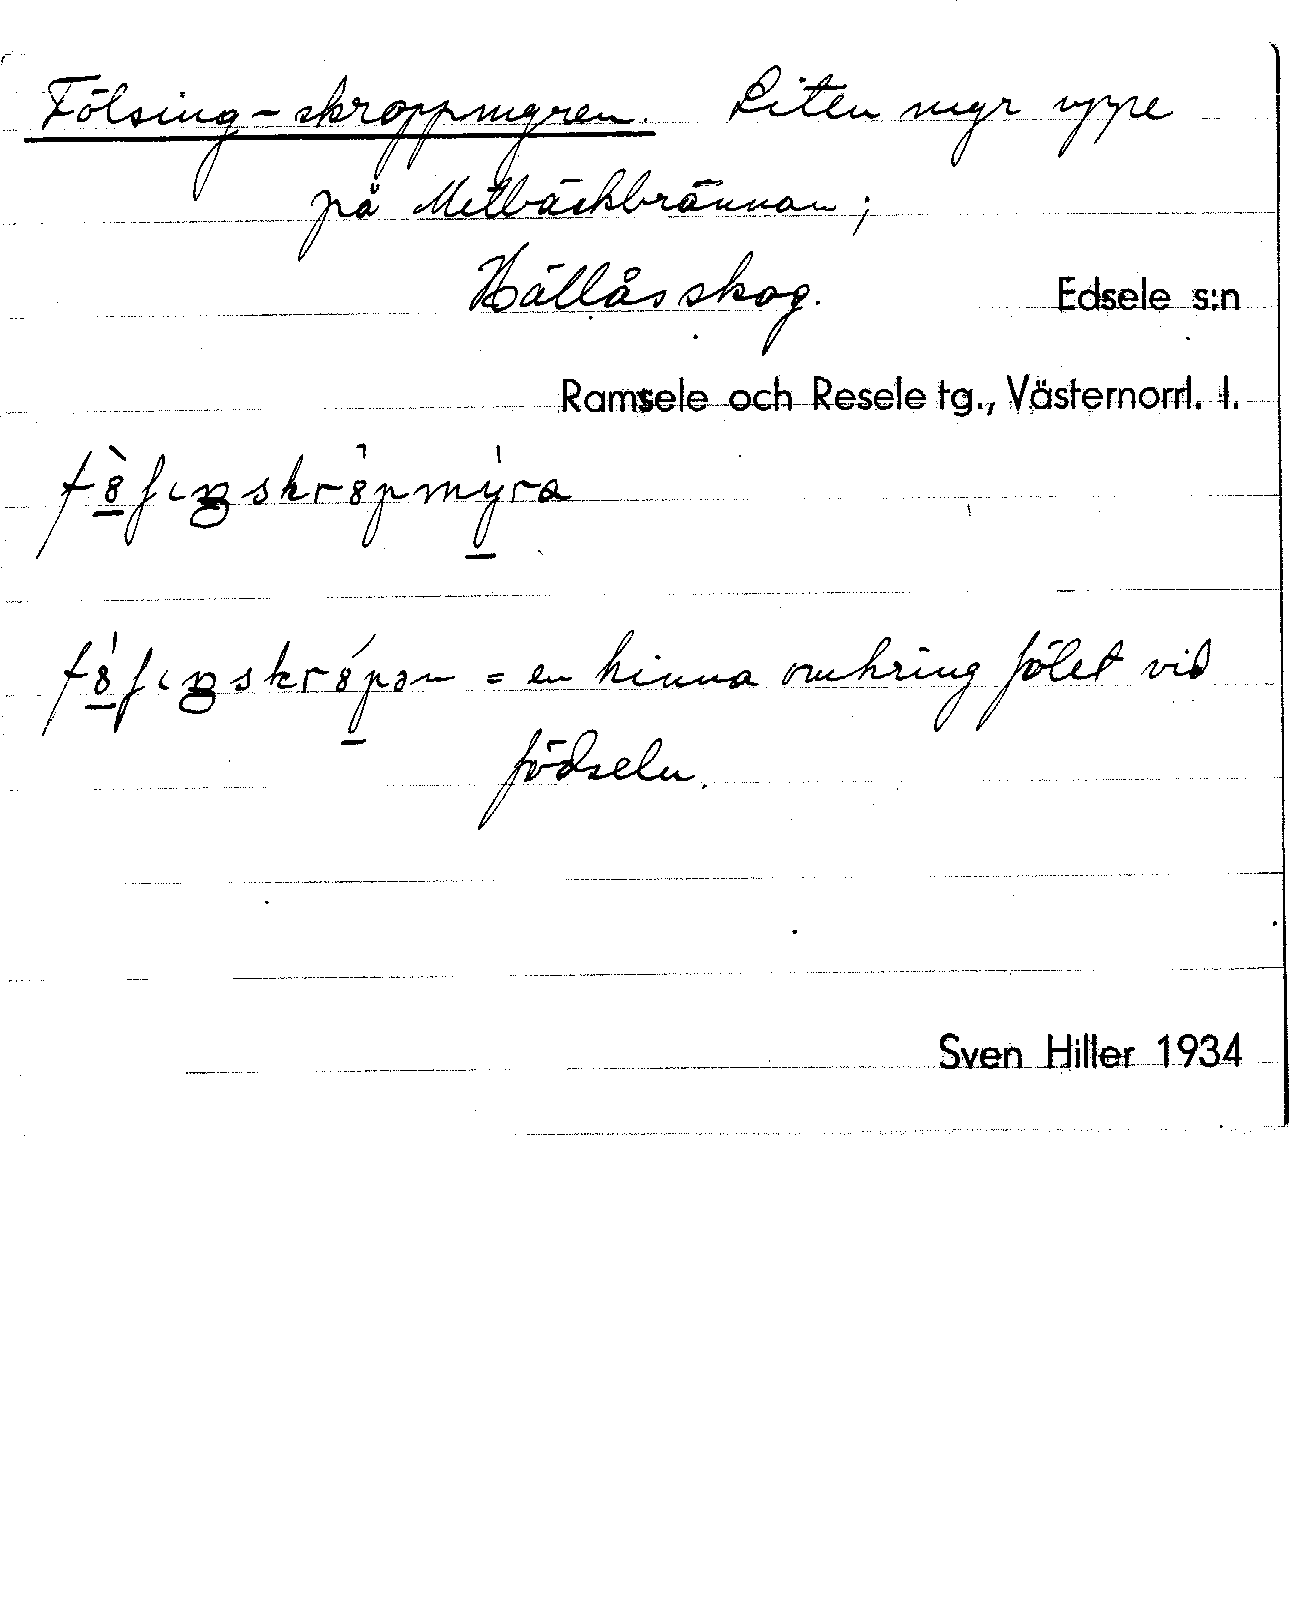 Fölsing-skroppmyren. Liten myr uppe
på Metbäckbrännan;
Hällåsskog. Edsele s:n
Ramsele och Resele tg., Västernorrl. l.
= en hinna omkring fölet vid
födseln.
Sven Hiller 1934